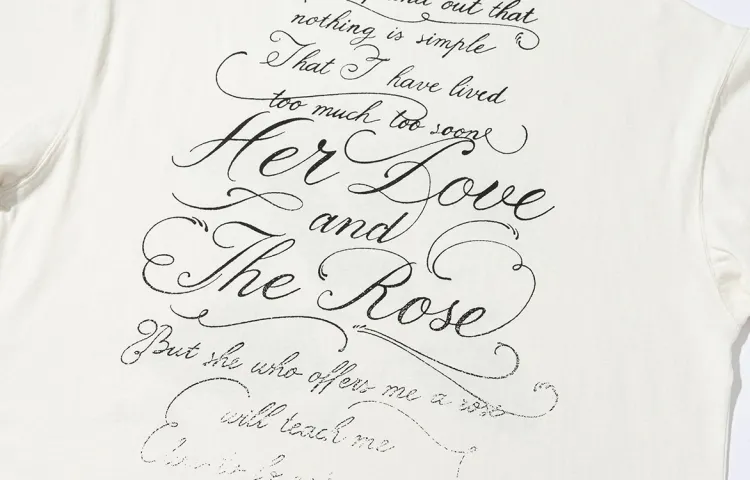 out that
nothing is simple
That I have lived
too much too soone
Her Love
and
The Rose
But she who offers me a rose
will teach me